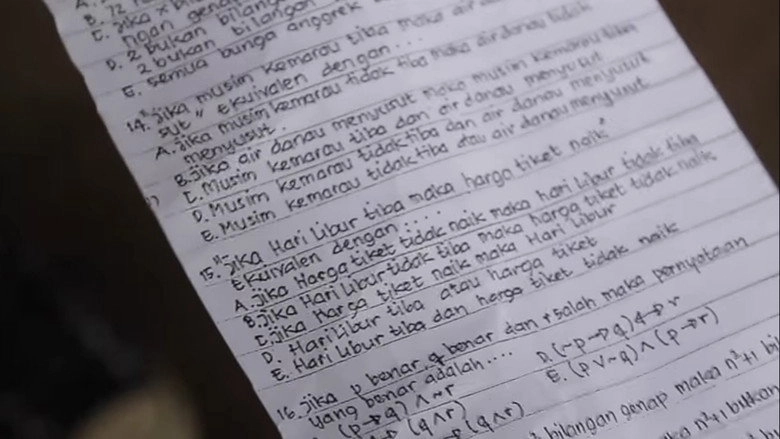 B. 12
C. Jika x bil
ngan genap
D. 2 bukan bilangan
2 bukan bilangan
E. semua bunga anggrek
14. "Jika musim kemarau tiba maka air da
sut" ekuivalen dengan...
A. Jika musim kemarau tidak tiba maka air danau tidak
menyusut.
B. Jika air danau menyusut maka musim kemarau tiba
C. Musim kemarau tiba dan air danau menyusut
D. Musim kemarau tidak tiba dan air danau menyusut
E. Musim kemarau tidak tiba atau air danau menyusut
15. "Jika Hari Libur tiba maka harga tiket naik"
Ekuivalen dengan ....
A. Jika Harga tiket tidak naik maka hari libur tidak tiba
B. Jika Hari Libur tidak tiba maka harga tiket tidak naik
C. Jika Harga tiket naik maka Hari Libur
D. Hari Libur tiba atau harga tiket
E. Hari Libur tiba dan harga tiket tidak naik
16. Jika p benar, q benar dan r salah maka pernyataan
yang benar adalah....
(p→q) ∧ ~r D. (~p→q)↔r
(q∧r) E. (p∨~q)∧(p→r)
(q∧r)
bilangan genap maka n²+1 bil
n²+1 bukan